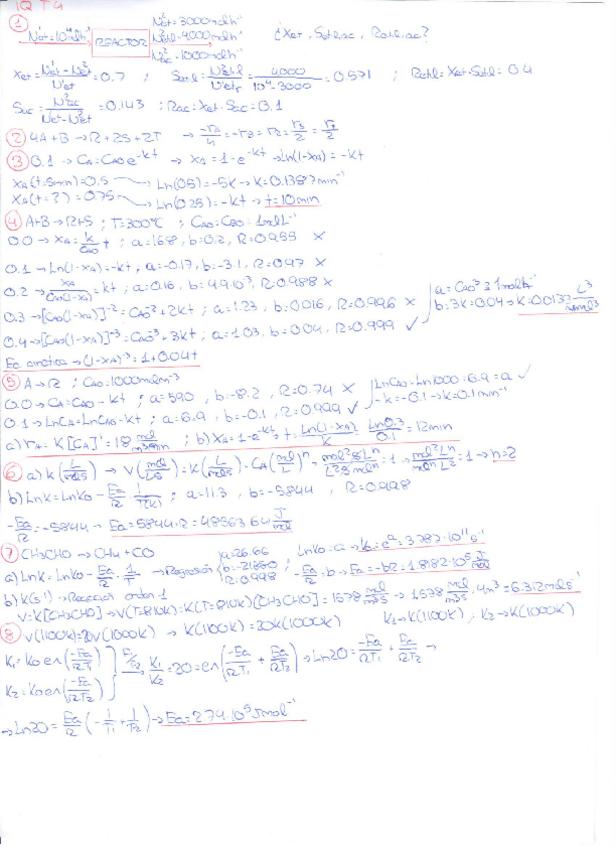 IQ T4
① N¹et=10⁴molh⁻¹ REACTOR N²et=3000molh⁻¹ N²etil=4000molh⁻¹ N²ac=1000molh⁻¹ ¿Xet, Setil,ac, Retil,ac?
Xet = (N¹et - N²et)/N¹et = 0.7 ; Setil = N²etil/(N¹et - N²et) = 4000/(10⁴-3000) = 0.571 ; Retil = Xet·Setil = 0.4
Sac = N²ac/(N¹et - N²et) = 0.143 ; Rac = Xet·Sac = 0.1
② 4A+B → R+2S+2T → -rA/4 = -rB = rR = rS/2 = rT/2
③ O.1 → CA = CA0 e^(-kt) → XA = 1-e^(-kt) → Ln(1-XA) = -kt
XA(t=5min)=0.5 → Ln(0.5) = -5k → k=0.1387min⁻¹
XA(t=?)=0.75 → Ln(0.25) = -kt → t=10min
④ A+B → R+S ; T=300ºC ; CA0=CB0=1molL⁻¹
O.0 → XA = (k/CA0)t ; a=16.8, b=0.2, R=0.955 ✗
O.1 → Ln(1-XA) = -kt, a=-0.17, b=-3.1, R=0.97 ✗
O.2 → XA/(CA0(1-XA)) = kt ; a=0.16, b=4.9·10³, R=0.988 ✗
O.3 → [CA0(1-XA)]⁻² = CA0⁻² + 2kt ; a=1.23, b=0.016, R=0.996 ✗
O.4 → [CA0(1-XA)]⁻³ = CA0⁻³ + 3kt ; a=1.03, b=0.04, R=0.999 ✓
b=3k=0.04 → k=0.0133
Ec cinética → (1-XA)⁻³ = 1+0.04t
⑤ A → R ; CA0=1000molm⁻³
O.0 → CA = CA0 - kt ; a=590, b=-8.2, R=0.74 ✗
O.1 → LnCA = LnCA0 - kt ; a=6.9, b=-0.1, R=0.999 ✓
LnCA0=Ln1000=6.9=a ✓
-k=-0.1 → k=0.1min⁻¹
a) rA = K[CA]¹ = 18 mol/m³min ; b) XA = 1-e^(-kt) → t = -Ln(1-XA)/k = -Ln0.3/0.1 = 12min
⑥ a) k(L/mols) → V(mol/Ls) = k(L/mols)·CA(mol/L)ⁿ → n=2
b) Lnk = Lnk0 - Ea/R · 1/T(K) ; a=11.3, b=-5844, R=0.998
-Ea/R = -5844 → Ea = 5844·R = 48563.64 J/mol
⑦ CH3CHO → CH4+CO
a) Lnk = Lnk0 - Ea/R · 1/T → Regresión a=26.66 b=-21860 R=0.998 ; Lnk0=a → k0=eᵃ=3.787·10¹¹s⁻¹
-Ea/R = b → Ea=-bR=1.8182·10⁵ J/mol
b) k(s⁻¹) → Reacción orden 1
V=k[CH3CHO] → V(T=810k)=k(T=810k)[CH3CHO]=1.578 mol/m³s → 1.578 mol/m³s · 4m³ = 6.312mols⁻¹
⑧ V(1100k)=20V(1000k) → k(1100k)=20k(1000k) K1→K(1100k) ; K2→K(1000k)
K1 = k0 en(-Ea/RT1)
K2 = k0 en(-Ea/RT2)
K1/K2 = 20 = en(-Ea/RT1 + Ea/RT2) → Ln20 = -Ea/RT1 + Ea/RT2 →
→ Ln20 = Ea/R(-1/T1 + 1/T2) → Ea=2.74·10⁵Jmol⁻¹